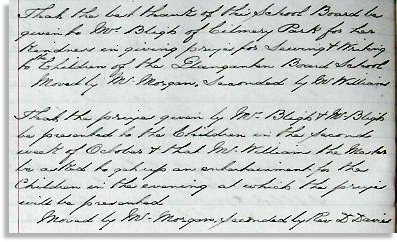 That the best thanks of this School Board be
given to Mrs Bligh of Cilmery Park for her
kindness in giving prizes for Sewing & Writing
to the Children of the Llanganten Board School
Moved by Mr Morgan, Seconded by Mr Williams
That the prizes given by Mr Bligh & Mrs Bligh
be presented to the Children in the second
week of October & that Mr Williams the Master
be asked to get up an entertainment for the
Children in the evening at which the prizes
will be presented
Moved by Mr Morgan, seconded by Rev D Davies